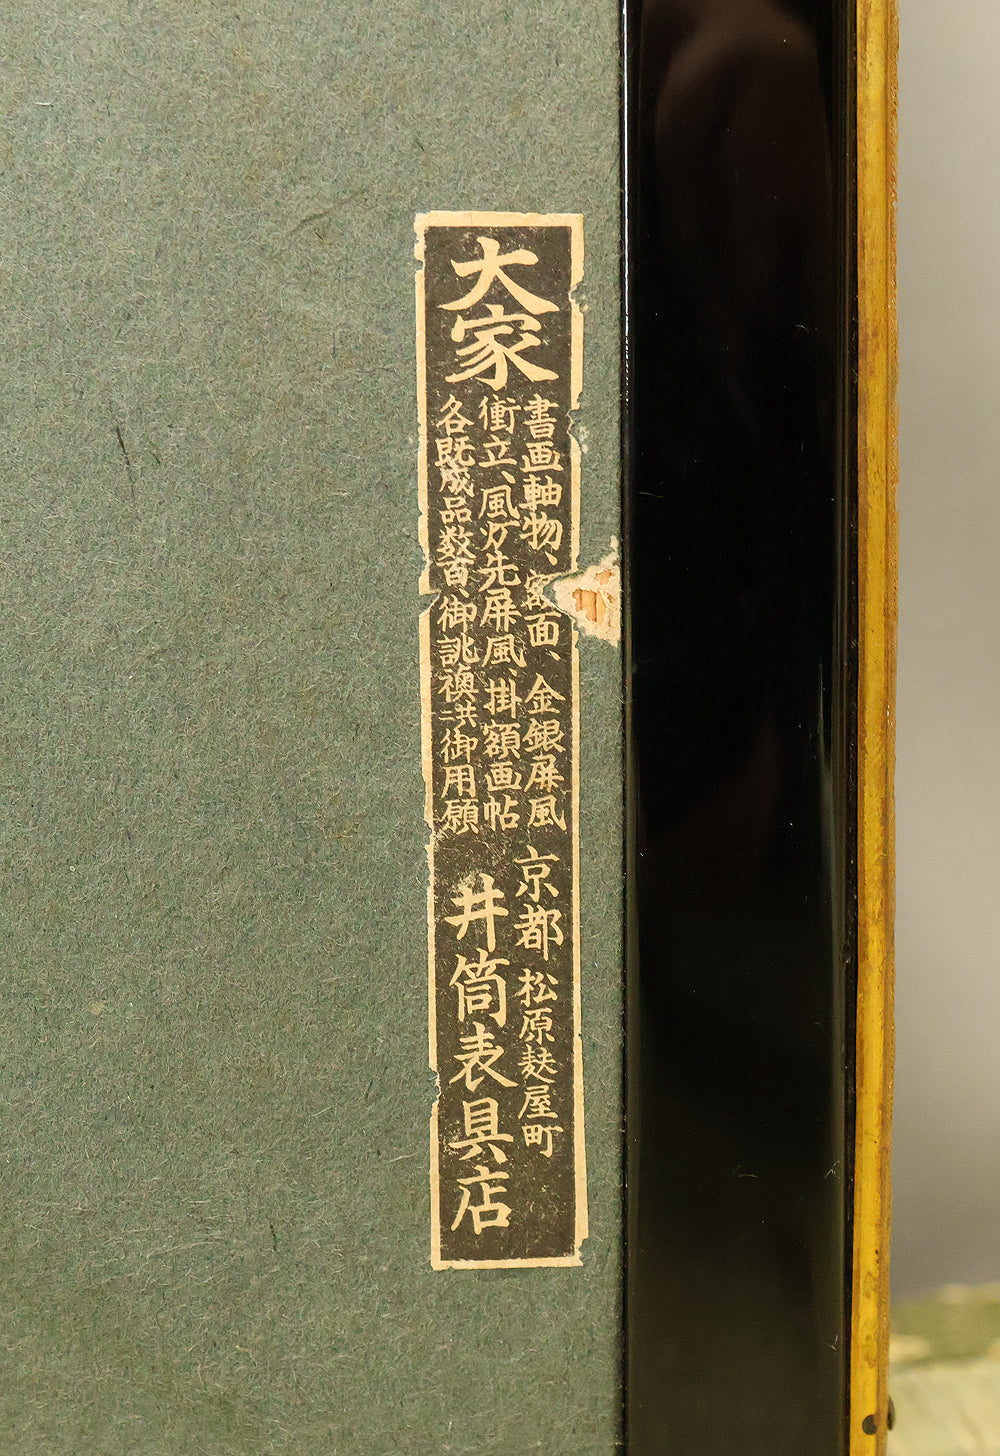 大家
書画軸物、 面、金銀屏風
衝立、風炉先屏風、掛額画帖
各既成品数百、御誂襖共ニ御用願
京都 松原麸屋町
井筒表具店